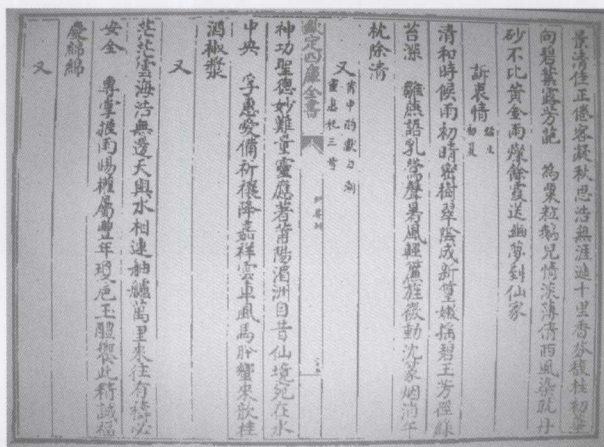 景清佳正倦客凝秋思浩無涯遶十里香芬馥桂初華
向碧葉露芳葩　為粟粒鵝兒情淡薄倩西風染就丹
砂不比黃金雨燦餘霞送幽夢到仙家
訴衷情
初夏
清和時候雨初晴密樹翠陰成新篁嫩搖碧玉芳徑綠
苔深　雛燕語乳鶯聲暑風輕簾旌微動沈篆烟消午
枕餘清
又
莆中酌獻白湖
靈惠妃三首
欽定四庫全書
神功聖德妙難量靈應著莆陽湄洲自昔仙境宛在水
中央　孚惠愛備祈禳降嘉祥雲車風馬肸蠁來歆桂
酒椒漿
又
茫茫雲海浩無邊天與水相連舳艫萬里來往有禱必
安全　專掌握雨暘權屬豐年瓊卮玉醴饗此精誠福
慶綿綿
又